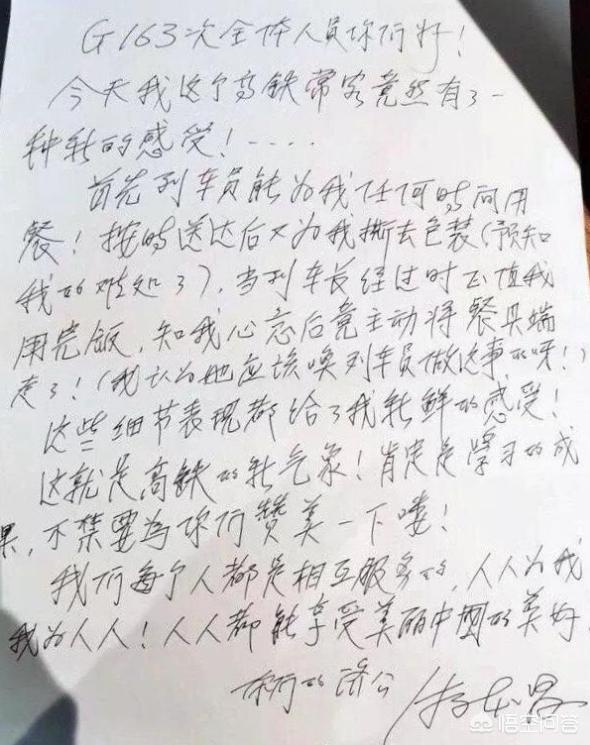 G163次全体人员你们好！
今天我这个高铁常客竟然有了一
种新的感受！....
首先列车员能为我任何时间用
餐！按时送达后又为我撕去包装（预知
我的难处了），当列车长经过时正值我
用完饭，知我心意后竟主动将餐具端
走了！（我认为她应该唤列车员做这事的呀！）
这些细节表现都给了我新鲜的感受！
这就是高铁的新气象！肯定是学习的成
果，不禁要為你们赞美一下喽！
我们每个人都是相互服务的，人人为我
我为人人！人人都能享受美丽中國的美好。
你们的济公 游本昌
悟空问答